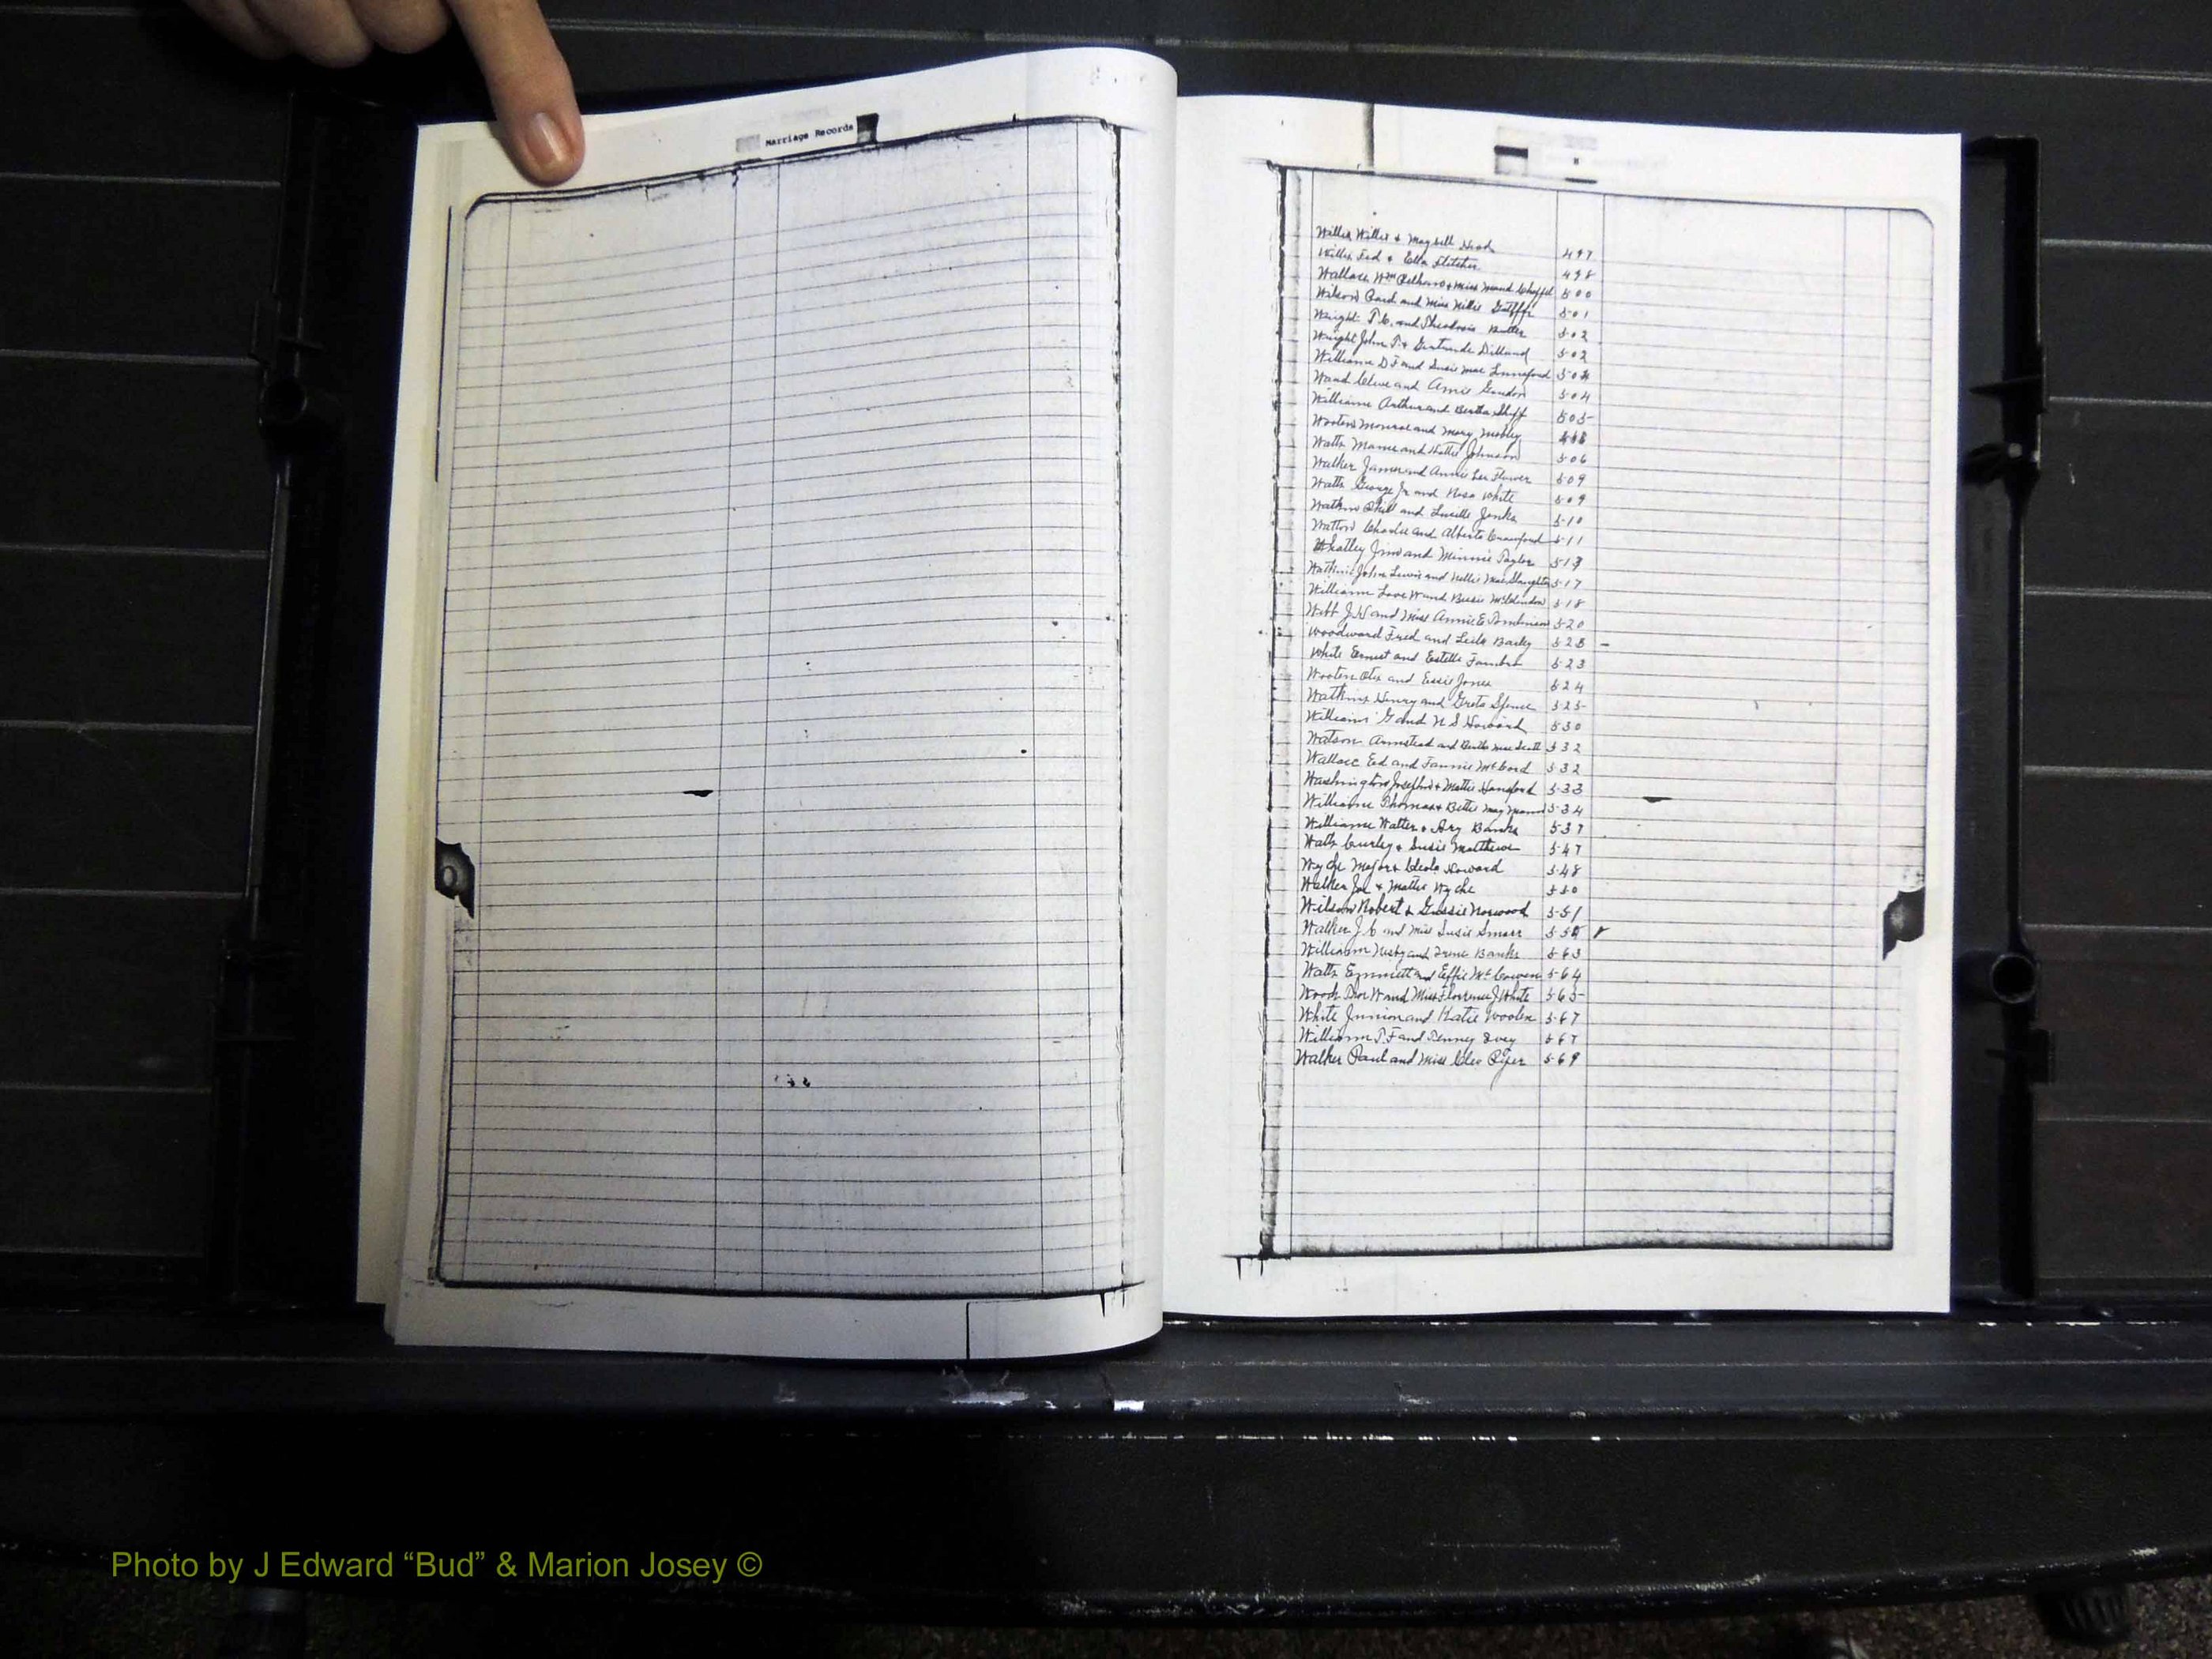 Marriage Records
Willis Willie & Maybell Head 497
Willis Fed & Ella Fletcher 498
Wallace Wm & Miss Maud 500
Wilson and Miss Nellie 501
Wright T.C. and Theodosia Butler 502
Wright John T. & Gertrude Dillard 502
Williams D F and Susie Mae Lunceford 503
Ward Cleve and Amie Gordon 504
Williams Arthur and Bertha Shiff 505
Wooten Monroe and Mary Mobley
Watts and Hattie Johnson 506
Walker James and Annie Lee Flower 509
Watts George Jr and Rosa White 509
Watkins Phil and Lucille Jinks 510
Watton Charlie and Alberta Crawford 511
Whatley Jim and Minnie Taylor 513
Watkins John Lewis and Nellie Mae Slaughter 517
Williams Love W and Bessie McClendon 518
Webb J.H. and Miss Annie E Tomlinson 520
Woodward Fred and Leila Bailey 523 -
White Ernest and Estelle Fambro 523
Wooten Otis and Essie Jones 524
Watkins Henry and Greta Spence 525
Williams G and N S Howard 530
Watson Armstead and Bertha Mae Scott 532
Wallace Ed and Fannie McCord 532
Washington Josephus & Mattie Hansford 533
Williams Thomas & Bettie May 534
Williams Walter & Ary Banks 537
Watts Curley & Susie Matthews 547
Wyche Major & Cleola Howard 548
Walker Joe & Mattie Wyche 550
Wilson Robert & Gussie Norwood 551
Walker J C and Miss Susie Smarr
Williams Nisby and Irene Banks 563
Watts Emmett and Effie McCowen 564
Wood W and Miss Florence J White 565
White Junior and Katie Wooten 567
Williams T.F and Penney Ivey 567
Walker Paul and Miss Cleo Piper 569
Photo by J Edward “Bud” & Marion Josey ©